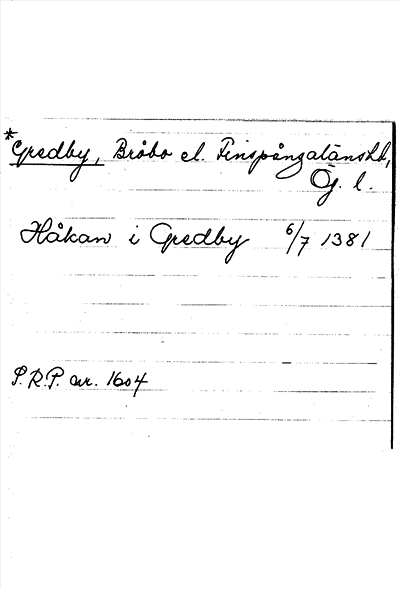 *Gredby, Bråbo el. Finspångaläns hd,
Ög. l.
Håkan i Gredby 6/7 1381
P.R.P. nr. 1604